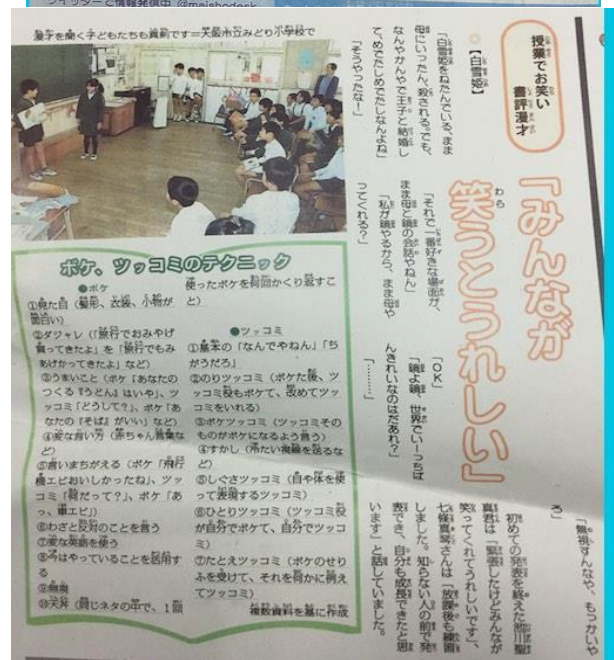 ツイッターで情報発信中 @maishodesk
授業でお笑い
書評漫才
「みんなが
笑うとうれしい」
漫才を聞く子どもたちも真剣です＝大阪市立みどり小学校で
【白雪姫】
「白雪姫をねたんでいる、まま
母にいったん、殺される。でも、
なんやかんやで王子と結婚し
て、めでたしめでたしなんよね」
「そうやったな！」
「それで一番好きな場面が、
まま母と鏡の会話やねん」
「私が鏡やるから、まま母や
ってくれる？」
「OK」
「鏡よ鏡、世界でいーっちば
んきれいなのはだあれ？」
「………」
「無視すんなや、もっかいや
ろ」
初めての発表を終えた池川聖
真君は「緊張したけどみんなが
笑ってくれてうれしいです」、
七條真琴さんは「放課後も練習
しました。知らない人の前で発
表でき、自分も成長できたと思
います」と話していました。
ボケ、ツッコミのテクニック
●ボケ
①見た目（髪形、衣装、小物が
面白い）
②ダジャレ（「旅行でおみやげ
買ってきたよ」を「旅行でもみ
あげかってきたよ」など）
③うまいこと（ボケ「あなたの
つくる『うどん』はいや」、ツ
ッコミ「どうして？」、ボケ「あ
なたの『そば』がいい」など）
④変な言い方（赤ちゃん言葉な
ど）
⑤言いまちがえる（ボケ「飛行
機エビおいしかったね」、ツッ
コミ「何だって？」、ボケ「あ
っ、車エビ」）
⑥わざと反対のことを言う
⑦変な英語を使う
⑧今はやっていることを活用す
る
⑨無視
⑩天丼（同じネタの中で、1回
使ったボケを何回かくり返すこ
と）
●ツッコミ
①基本の「なんでやねん」「ち
がうだろ」
②のりツッコミ（ボケた後、ツ
ッコミ役もボケて、改めてツッ
コミをいれる）
③ボケツッコミ（ツッコミその
ものがボケになるよう言う）
④すかし（冷たい視線を送るな
ど）
⑤しぐさツッコミ（目や体を使
って表現するツッコミ）
⑥ひとりツッコミ（ツッコミ役
が自分でボケて、自分でツッコ
ミ）
⑦たとえツッコミ（ボケのせり
ふを受けて、それを何かに例え
てツッコミ）
複数資料を基に作成